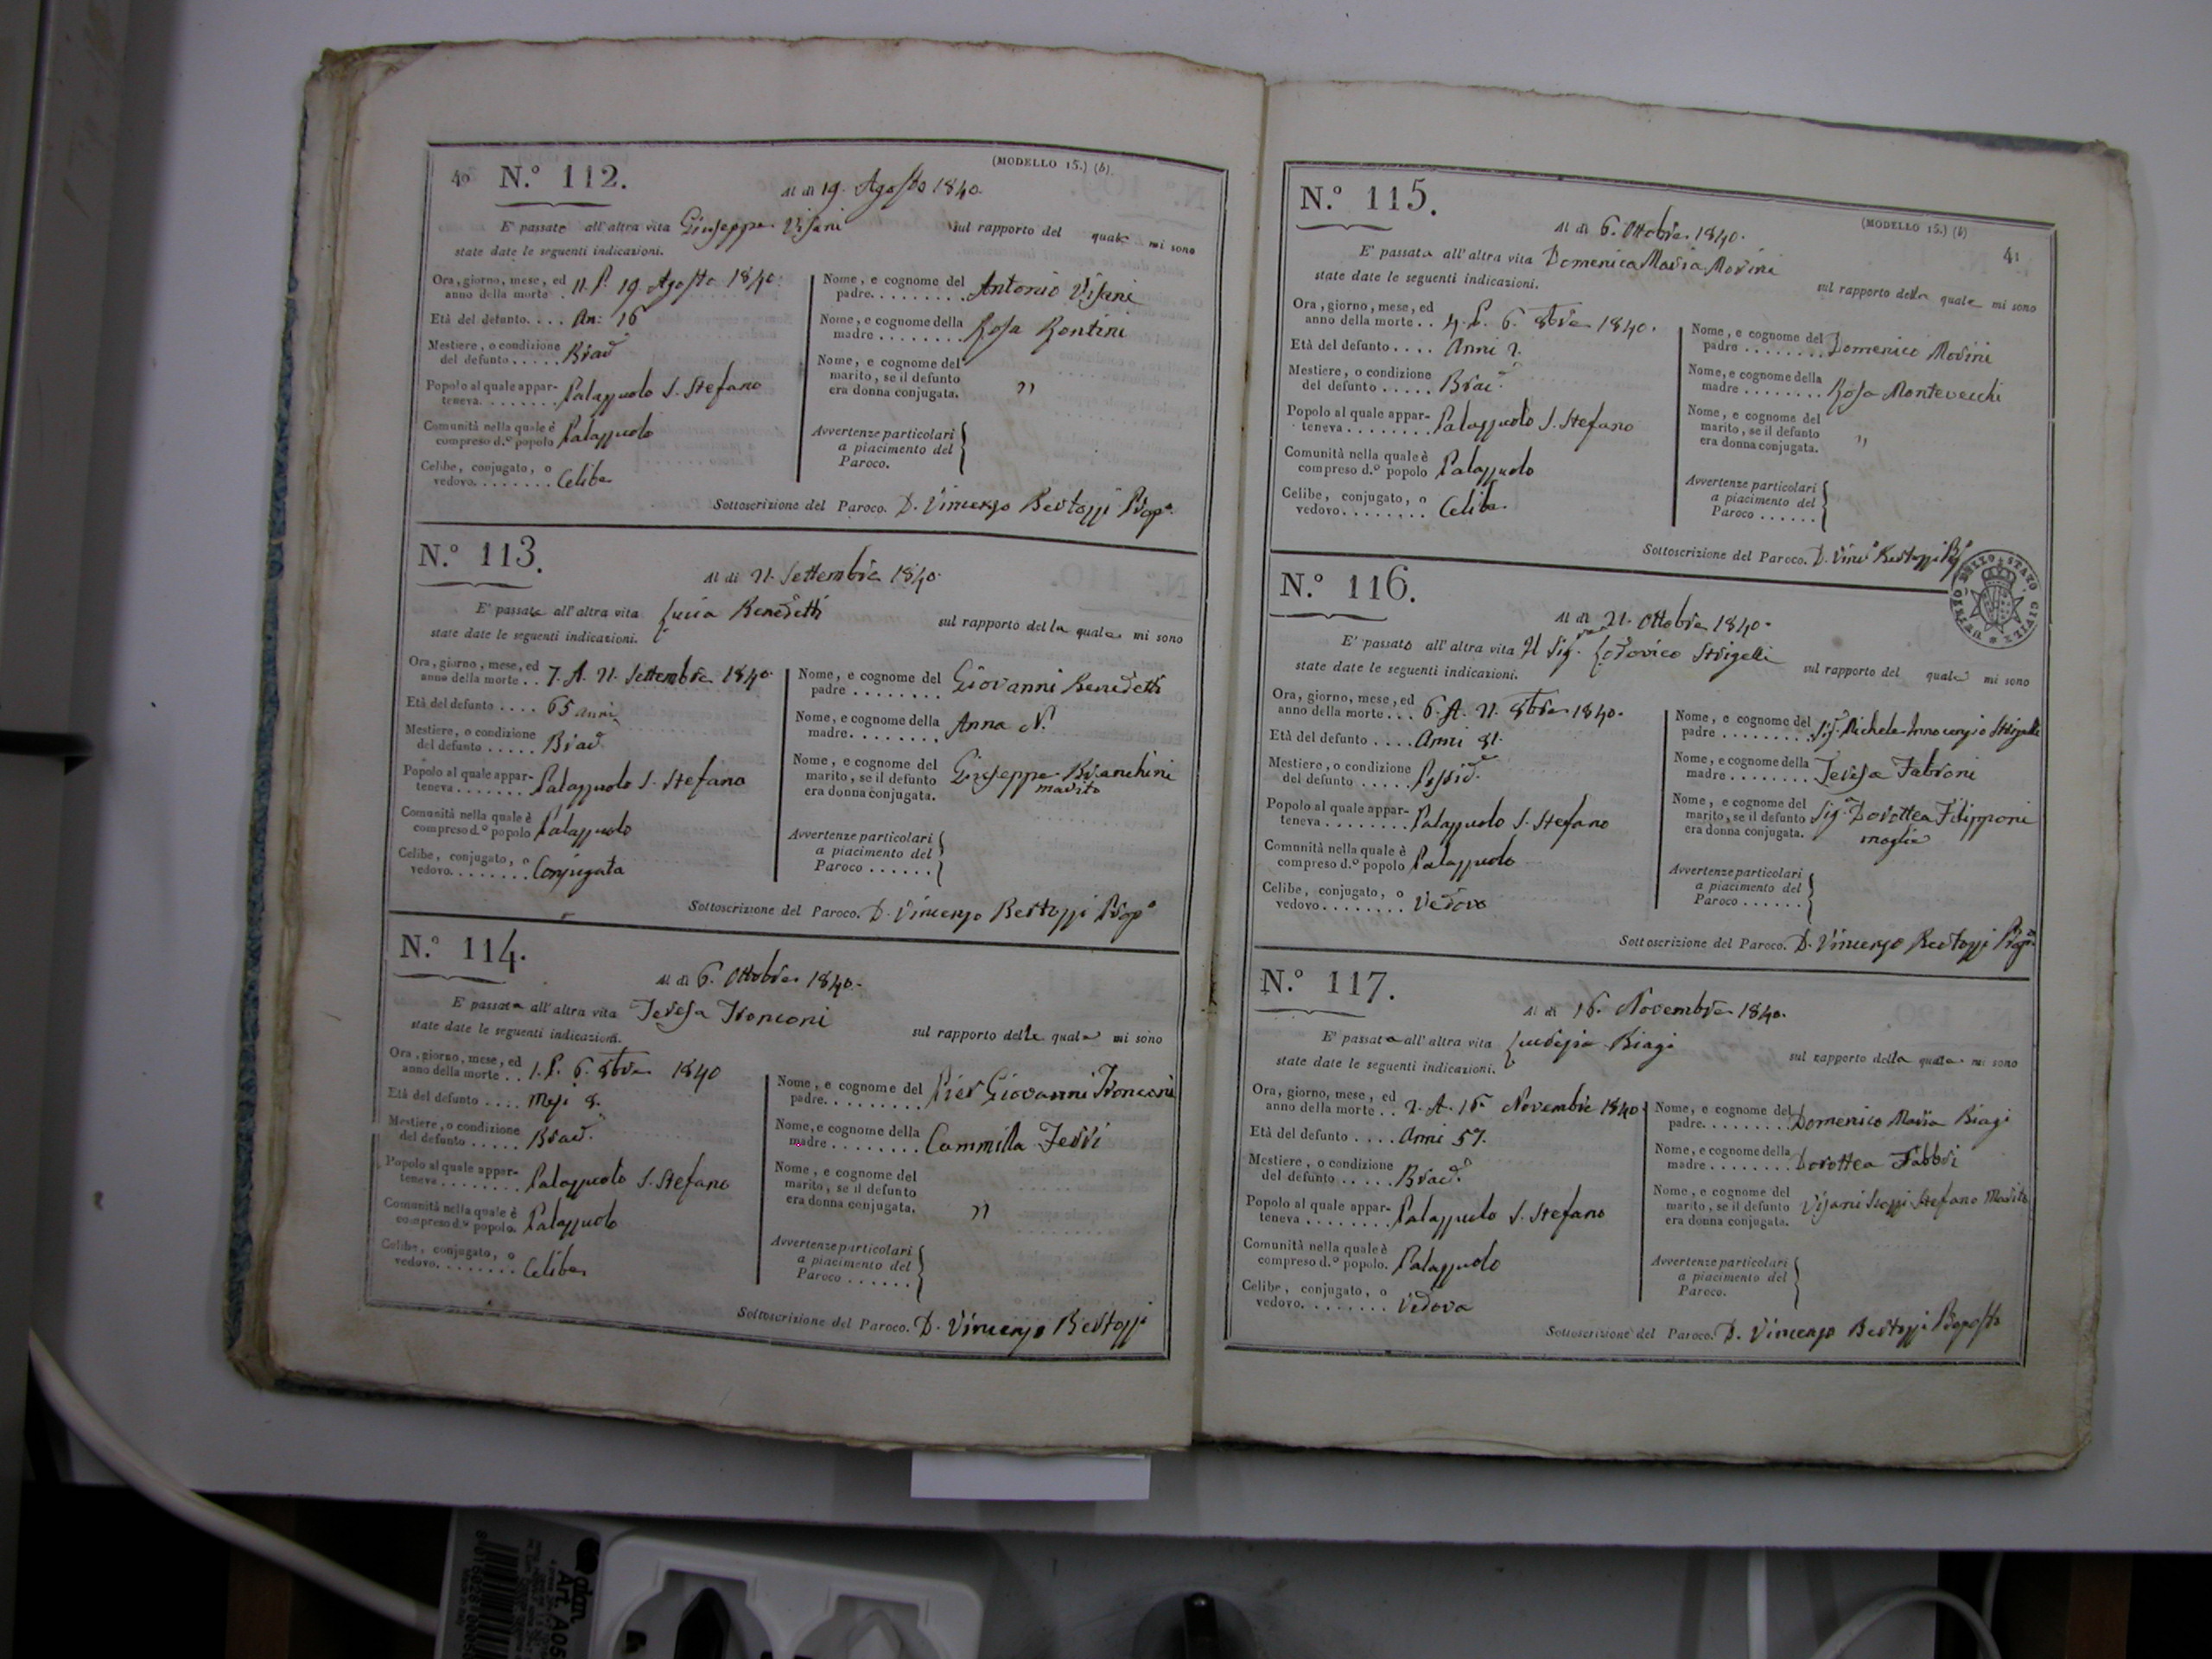 (MODELLO 15.) (b)
40 N.º 112.
Al dì 19. Agosto 1840.
E' passato all'altra vita Giuseppe Visani sul rapporto del quale mi sono
state date le seguenti indicazioni.
Ora, giorno, mese, ed
anno della morte . 11. P. 19 Agosto 1840.
Età del defunto. . . . An: 16
Mestiere, o condizione
del defunto . . . . . Brac.
Popolo al quale appar-
teneva. . . . . . . . Palazzuolo S. Stefano
Comunità nella quale è
compreso d.º popolo Palazzuolo
Celibe, conjugato, o
vedovo. . . . . . . . Celibe
Nome, e cognome del
padre. . . . . . . . . Antonio Visani
Nome, e cognome della
madre . . . . . . . . Rosa Rontini
Nome, e cognome del
marito, se il defunto
era donna conjugata. "
Avvertenze particolari
a piacimento del
Paroco.
Sottoscrizione del Paroco. D. Vincenzo Bertozzi Prop.º
N.º 113.
Al dì 21. Settembre 1840.
E' passata all'altra vita Lucia Benedetti sul rapporto della quale mi sono
state date le seguenti indicazioni.
Ora, giorno, mese, ed
anno della morte . . 7. A. 21. Settembre 1840.
Età del defunto . . . . 65 anni
Mestiere, o condizione
del defunto . . . . . Brac.
Popolo al quale appar-
teneva . . . . . . . Palazzuolo S. Stefano
Comunità nella quale è
compreso d.º popolo Palazzuolo
Celibe, conjugato, o
vedovo. . . . . . . . Conjugata
Nome, e cognome del
padre . . . . . . . . Giovanni Benedetti
Nome, e cognome della
madre. . . . . . . . Anna N.
Nome, e cognome del
marito, se il defunto Giuseppe Bianchini
era donna conjugata. marito
Avvertenze particolari
a piacimento del
Paroco . . . . . .
Sottoscrizione del Paroco. D. Vincenzo Bertozzi Prop.º
N.º 114.
Al dì 6. Ottobre 1840.
E' passata all'altra vita Teresa Tronconi sul rapporto della quale mi sono
state date le seguenti indicazioni.
Ora, giorno, mese, ed
anno della morte . . 1. P. 6. 8bre 1840
Età del defunto . . . . Mesi 8.
Mestiere, o condizione
del defunto . . . . . Brac.
Popolo al quale appar-
teneva . . . . . . . . Palazzuolo S. Stefano
Comunità nella quale è
compreso d.º popolo. Palazzuolo
Celibe, conjugato, o
vedovo. . . . . . . . Celibe
Nome, e cognome del
padre. . . . . . . . . Pier Giovanni Tronconi
Nome, e cognome della
madre . . . . . . . . Cammilla Ferri
Nome, e cognome del
marito, se il defunto
era donna conjugata. "
Avvertenze particolari
a piacimento del
Paroco . . . . . .
Sottoscrizione del Paroco. D. Vincenzo Bertozzi
(MODELLO 15.) (b)
41
N.º 115.
Al dì 6. Ottobre 1840.
E' passata all'altra vita Domenica Maria Morini sul rapporto della quale mi sono
state date le seguenti indicazioni.
Ora, giorno, mese, ed
anno della morte . . 4. P. 6. 8bre 1840.
Età del defunto . . . . Anni 2.
Mestiere, o condizione
del defunto . . . . . Brac.
Popolo al quale appar-
teneva . . . . . . . . Palazzuolo S. Stefano
Comunità nella quale è
compreso d.º popolo Palazzuolo
Celibe, conjugato, o
vedovo. . . . . . . . Celibe
Nome, e cognome del
padre . . . . . . . . Domenico Morini
Nome, e cognome della
madre . . . . . . . . Rosa Montevecchi
Nome, e cognome del
marito, se il defunto
era donna conjugata. "
Avvertenze particolari
a piacimento del
Paroco . . . . . .
Sottoscrizione del Paroco. D. Vinc.º Bertozzi P.º
N.º 116.
Al dì 21. Ottobre 1840.
E' passato all'altra vita Il Sig. Lodovico Strigelli sul rapporto del quale mi sono
state date le seguenti indicazioni.
Ora, giorno, mese, ed
anno della morte . . . 6. A. 21. 8bre 1840.
Età del defunto . . . . Anni 81.
Mestiere, o condizione
del defunto . . . . . Possid.
Popolo al quale appar-
teneva . . . . . . . . Palazzuolo S. Stefano
Comunità nella quale è
compreso d.º popolo Palazzuolo
Celibe, conjugato, o
vedovo. . . . . . . . Vedovo
Nome, e cognome del
padre . . . . . . . . . Sig. Michele Innocenzio Strigelli
Nome, e cognome della
madre . . . . . . . . Teresa Fabroni
Nome, e cognome del
marito, se il defunto Sig.ª Dorottea Filipponi
era donna conjugata. moglie
Avvertenze particolari
a piacimento del
Paroco . . . . . .
Sottoscrizione del Paroco. D. Vincenzo Bertozzi Prop.º
N.º 117.
Al dì 16. Novembre 1840.
E' passata all'altra vita Lucrezia Biagi sul rapporto della quale mi sono
state date le seguenti indicazioni.
Ora, giorno, mese, ed
anno della morte . . 2. A. 16. Novembre 1840
Età del defunto . . . . Anni 57.
Mestiere, o condizione
del defunto . . . . . Brac.
Popolo al quale appar-
teneva . . . . . . . . Palazzuolo S. Stefano
Comunità nella quale è
compreso d.º popolo. Palazzuolo
Celibe, conjugato, o
vedovo. . . . . . . . Vedova
Nome, e cognome del
padre. . . . . . . . . Domenico Maria Biagi
Nome, e cognome della
madre . . . . . . . . Dorottea Fabbri
Nome, e cognome del
marito, se il defunto Visani Stefano Marito
era donna conjugata.
Avvertenze particolari
a piacimento del
Paroco.
Sottoscrizione del Paroco. D. Vincenzo Bertozzi Proposto
Art. A05